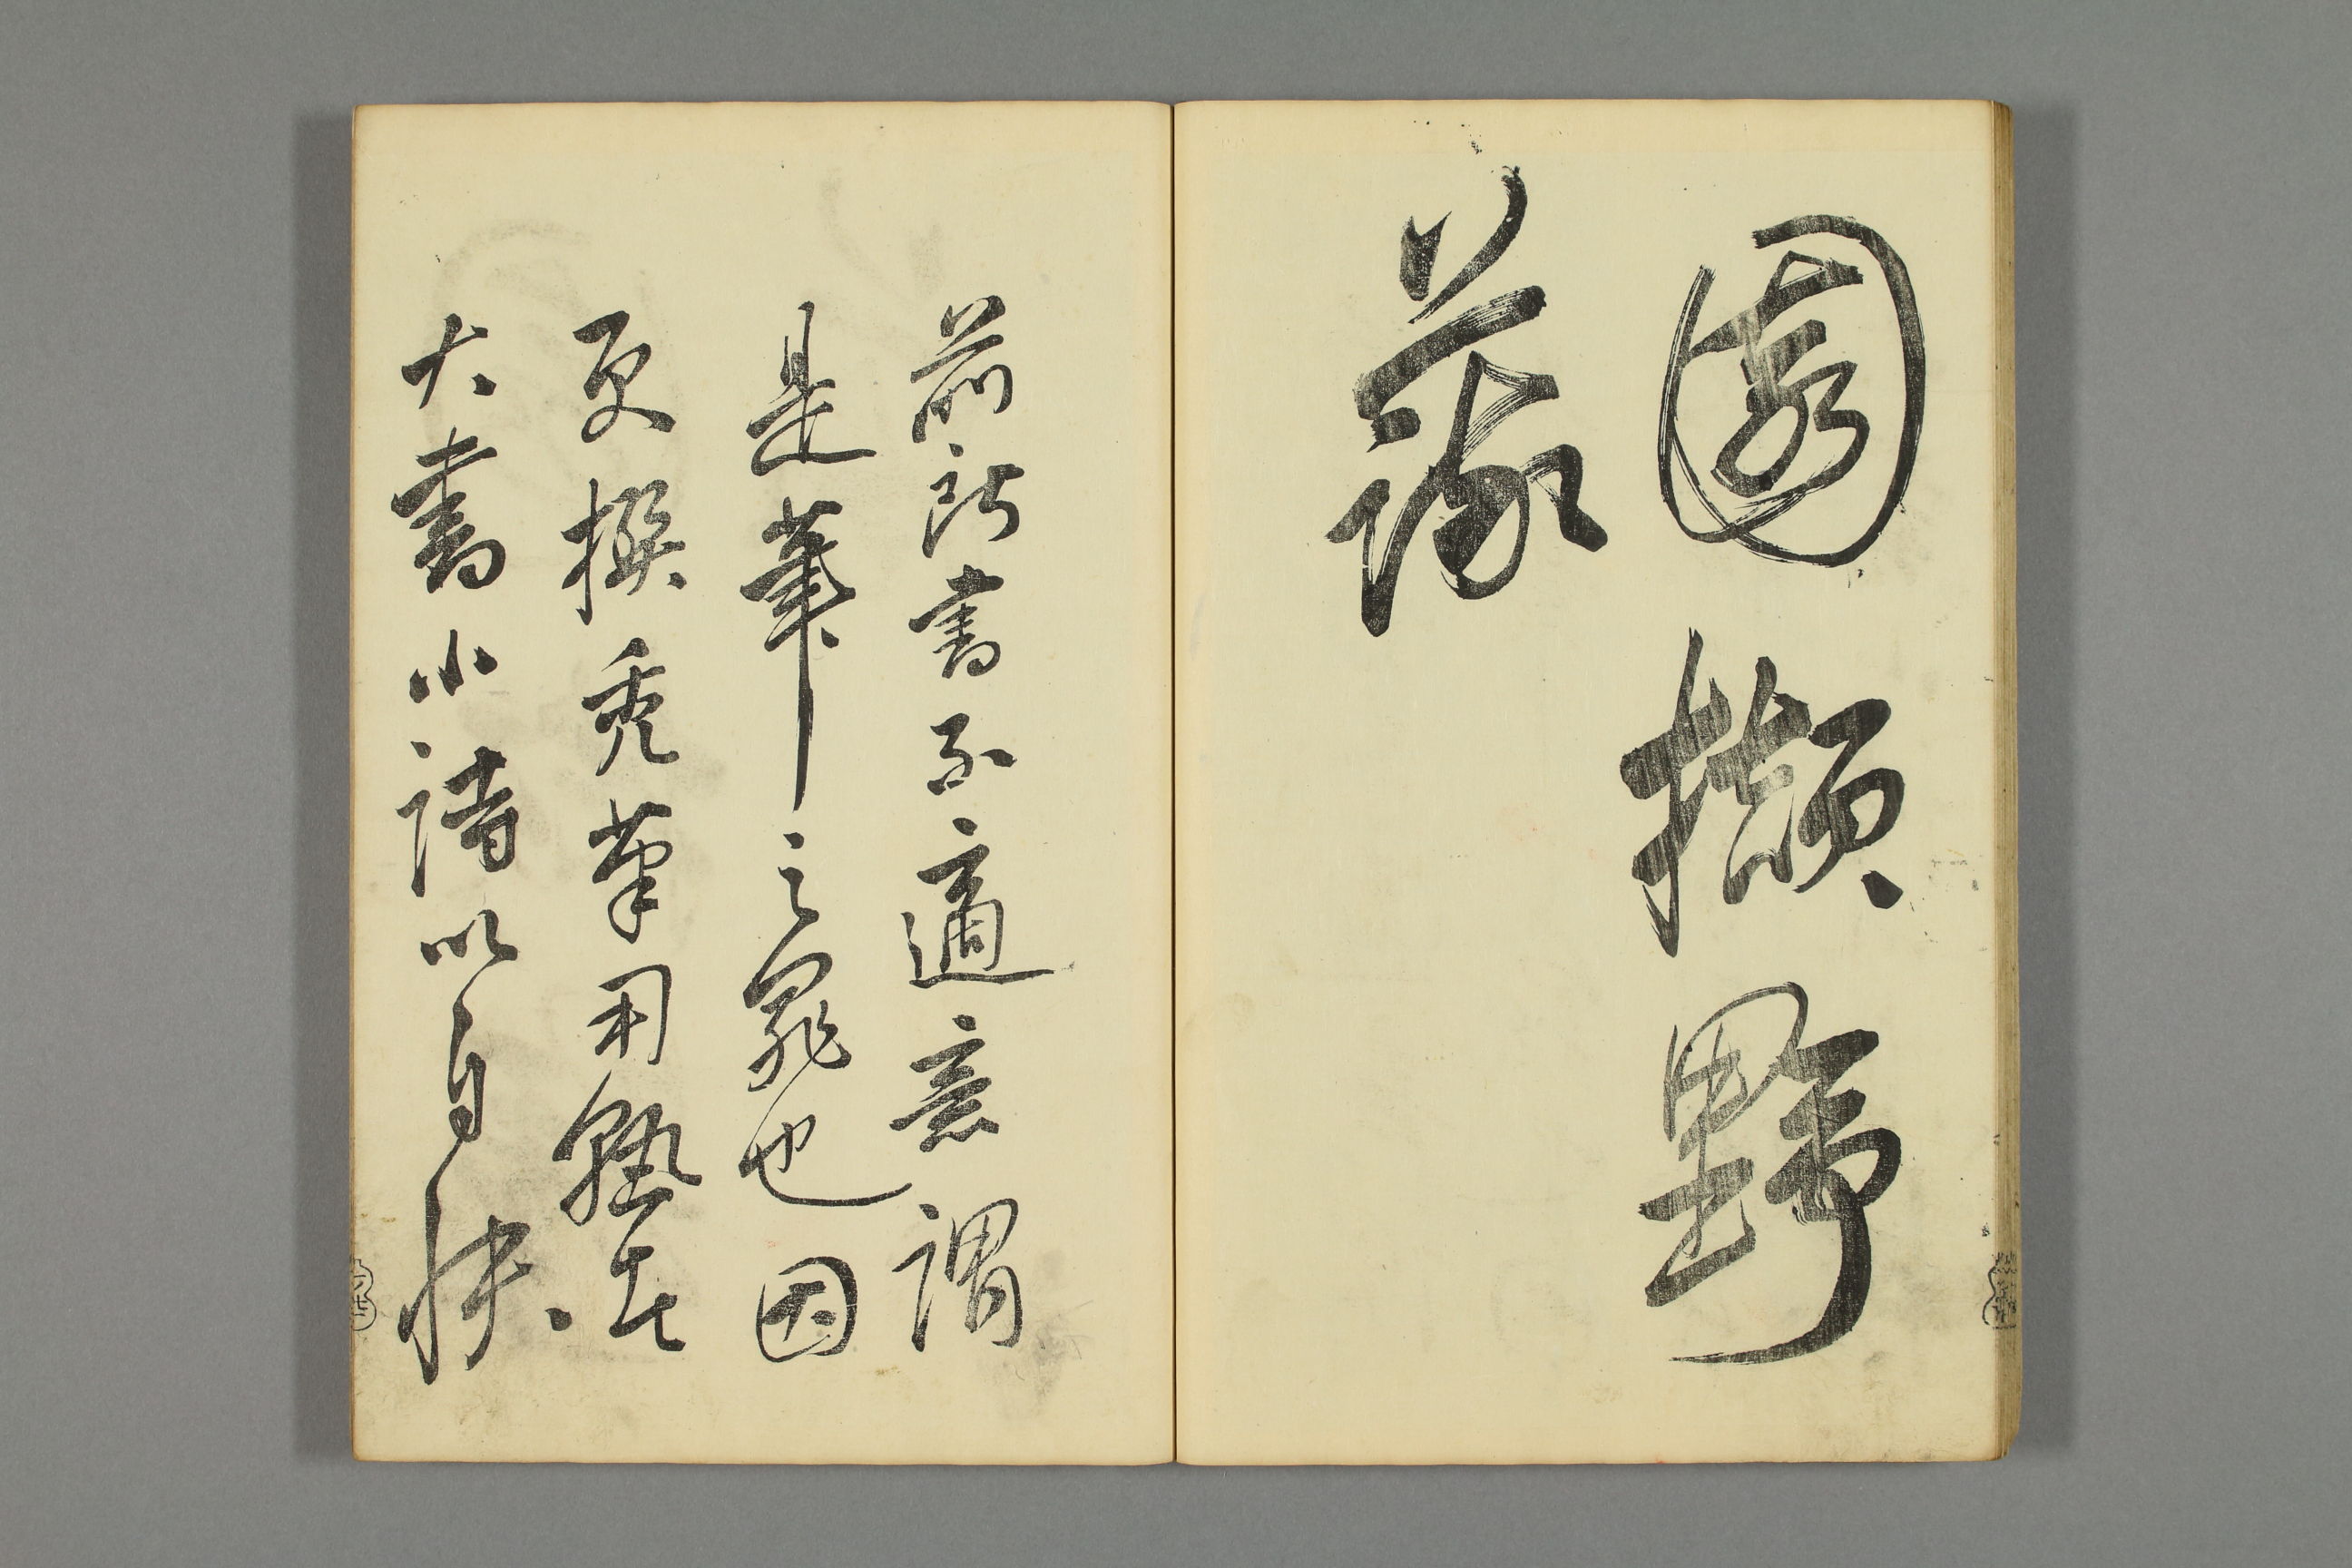 園擷野
蔬
前所書不適意謂
是筆之罪也因
更撰禿筆用熟在
大書小詩以自快